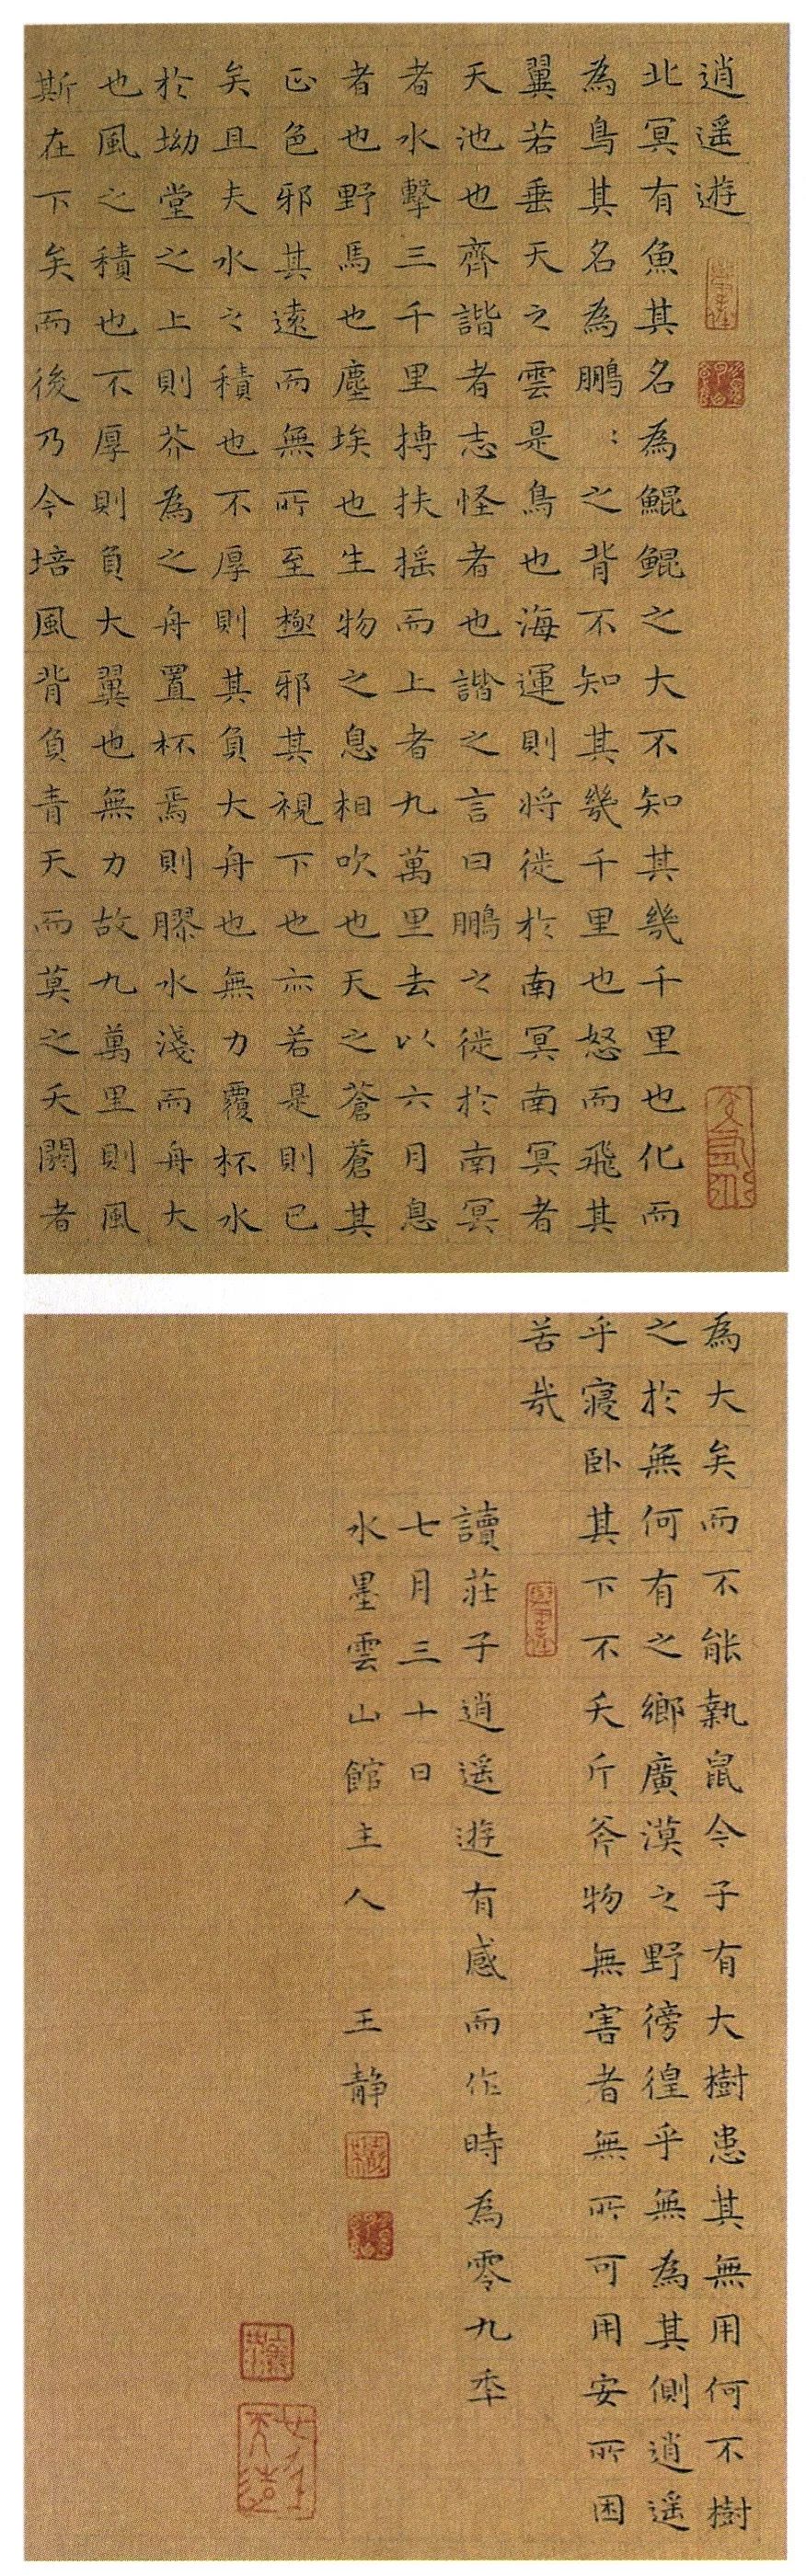 逍遥遊
北冥有魚其名為鯤鯤之大不知其幾千里也化而
為鳥其名為鵬：之背不知其幾千里也怒而飛其
翼若垂天之雲是鳥也海運則将徙於南冥南冥者
天池也齊諧者志怪者也諧之言曰鵬之徙於南冥
者水擊三千里摶扶摇而上者九萬里去以六月息
者也野馬也塵埃也生物之息相吹也天之蒼蒼其
正色邪其遠而無所至極邪其視下也亦若是則已
矣且夫水之積也不厚則其負大舟也無力覆杯水
於坳堂之上則芥為之舟置杯焉則膠水淺而舟大
也風之積也不厚則負大翼也無力故九萬里則風
斯在下矣而後乃今培風背負青天而莫之夭閼者
為大矣而不能執鼠今子有大樹患其無用何不樹
之於無何有之鄉廣漠之野徬徨乎無為其側逍遥
乎寢卧其下不夭斤斧物無害者無所可用安所困
苦哉
讀莊子逍遥遊有感而作時為零九秊
七月三十日
水墨雲山館主人 王静